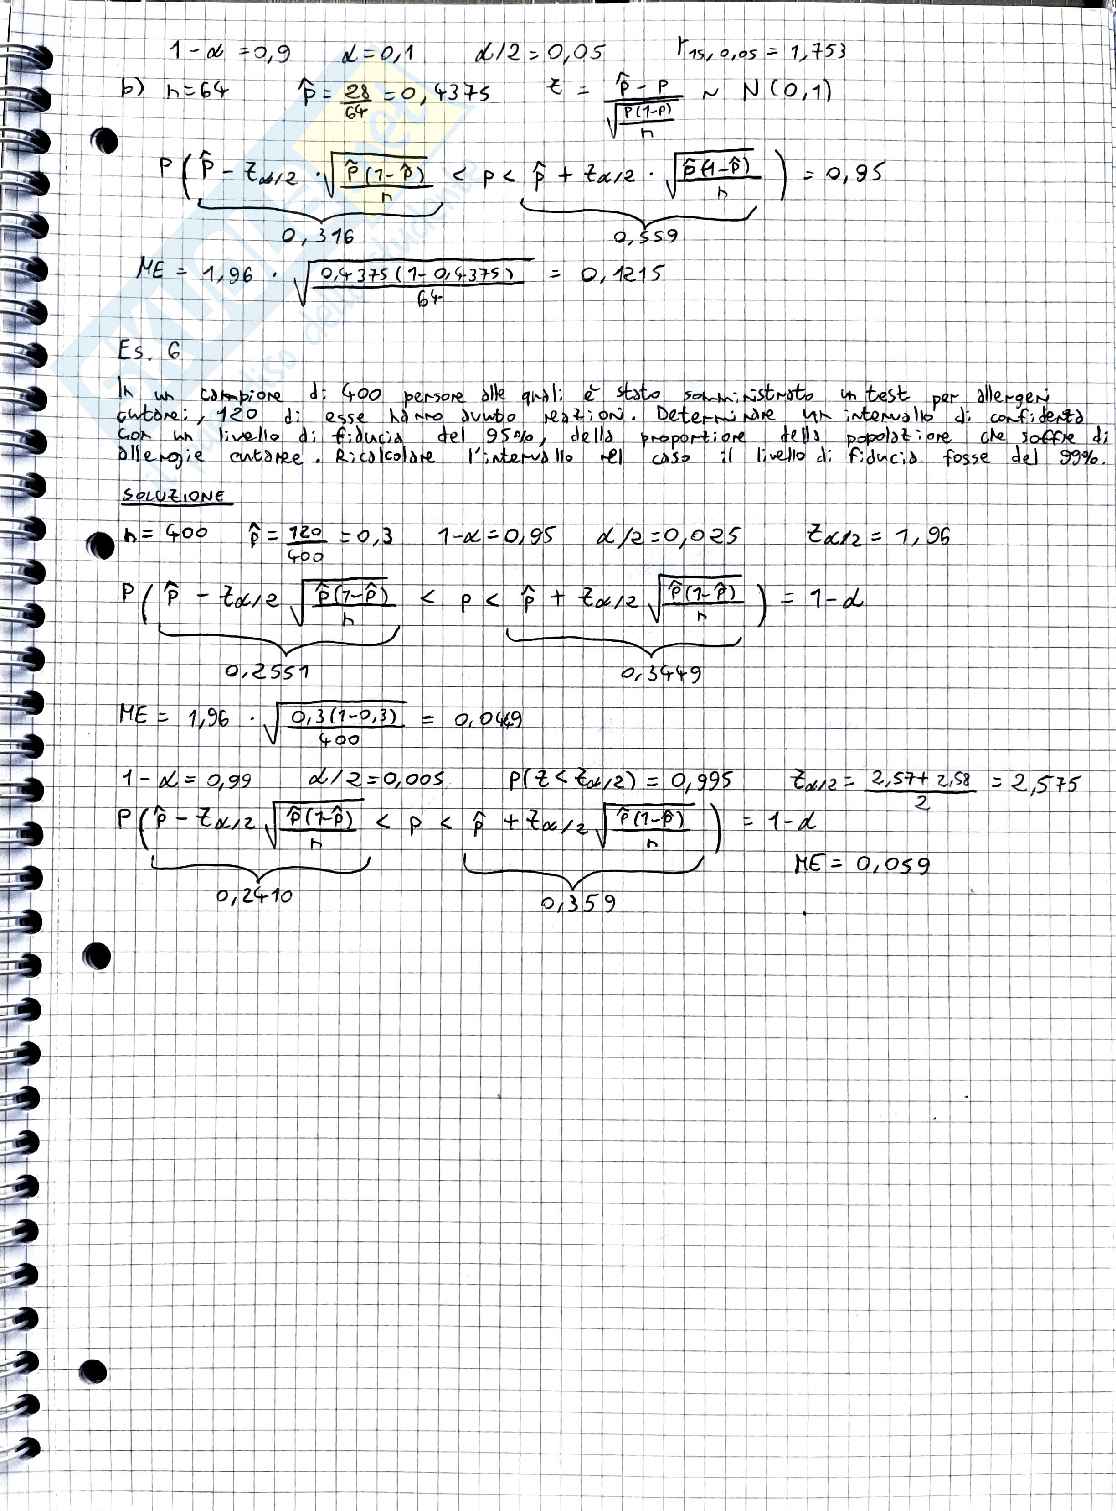 1-α=0,9 α=0,1 α/2=0,05 r15,0,05=1,753
b) n=64 p̂=28/64=0,4375 z = (p̂-p)/√(p(1-p)/n) ~ N(0,1)
P(p̂ - zα/2 · √(p̂(1-p̂)/n) < p < p̂ + zα/2 · √(p̂(1-p̂)/n)) = 0,95
0,316 0,559
ME = 1,96 · √(0,4375(1-0,4375)/64) = 0,1215
Es. 6
In un campione di 400 persone alle quali è stato somministrato un test per allergeni
cutanei, 120 di esse hanno avuto reazioni. Determinare un intervallo di confidenza
con un livello di fiducia del 95%, della proporzione della popolazione che soffre di
allergie cutanee. Ricalcolare l'intervallo nel caso il livello di fiducia fosse del 99%.
SOLUZIONE
n=400 p̂=120/400=0,3 1-α=0,95 α/2=0,025 zα/2=1,96
P(p̂ - zα/2 √(p̂(1-p̂)/n) < p < p̂ + zα/2 √(p̂(1-p̂)/n)) = 1-α
0,2551 0,3449
ME = 1,96 · √(0,3(1-0,3)/400) = 0,0449
1-α=0,99 α/2=0,005 P(z<zα/2)=0,995 zα/2=(2,57+2,58)/2=2,575
P(p̂ - zα/2 √(p̂(1-p̂)/n) < p < p̂ + zα/2 √(p̂(1-p̂)/n)) = 1-α
ME=0,059
0,2410 0,359